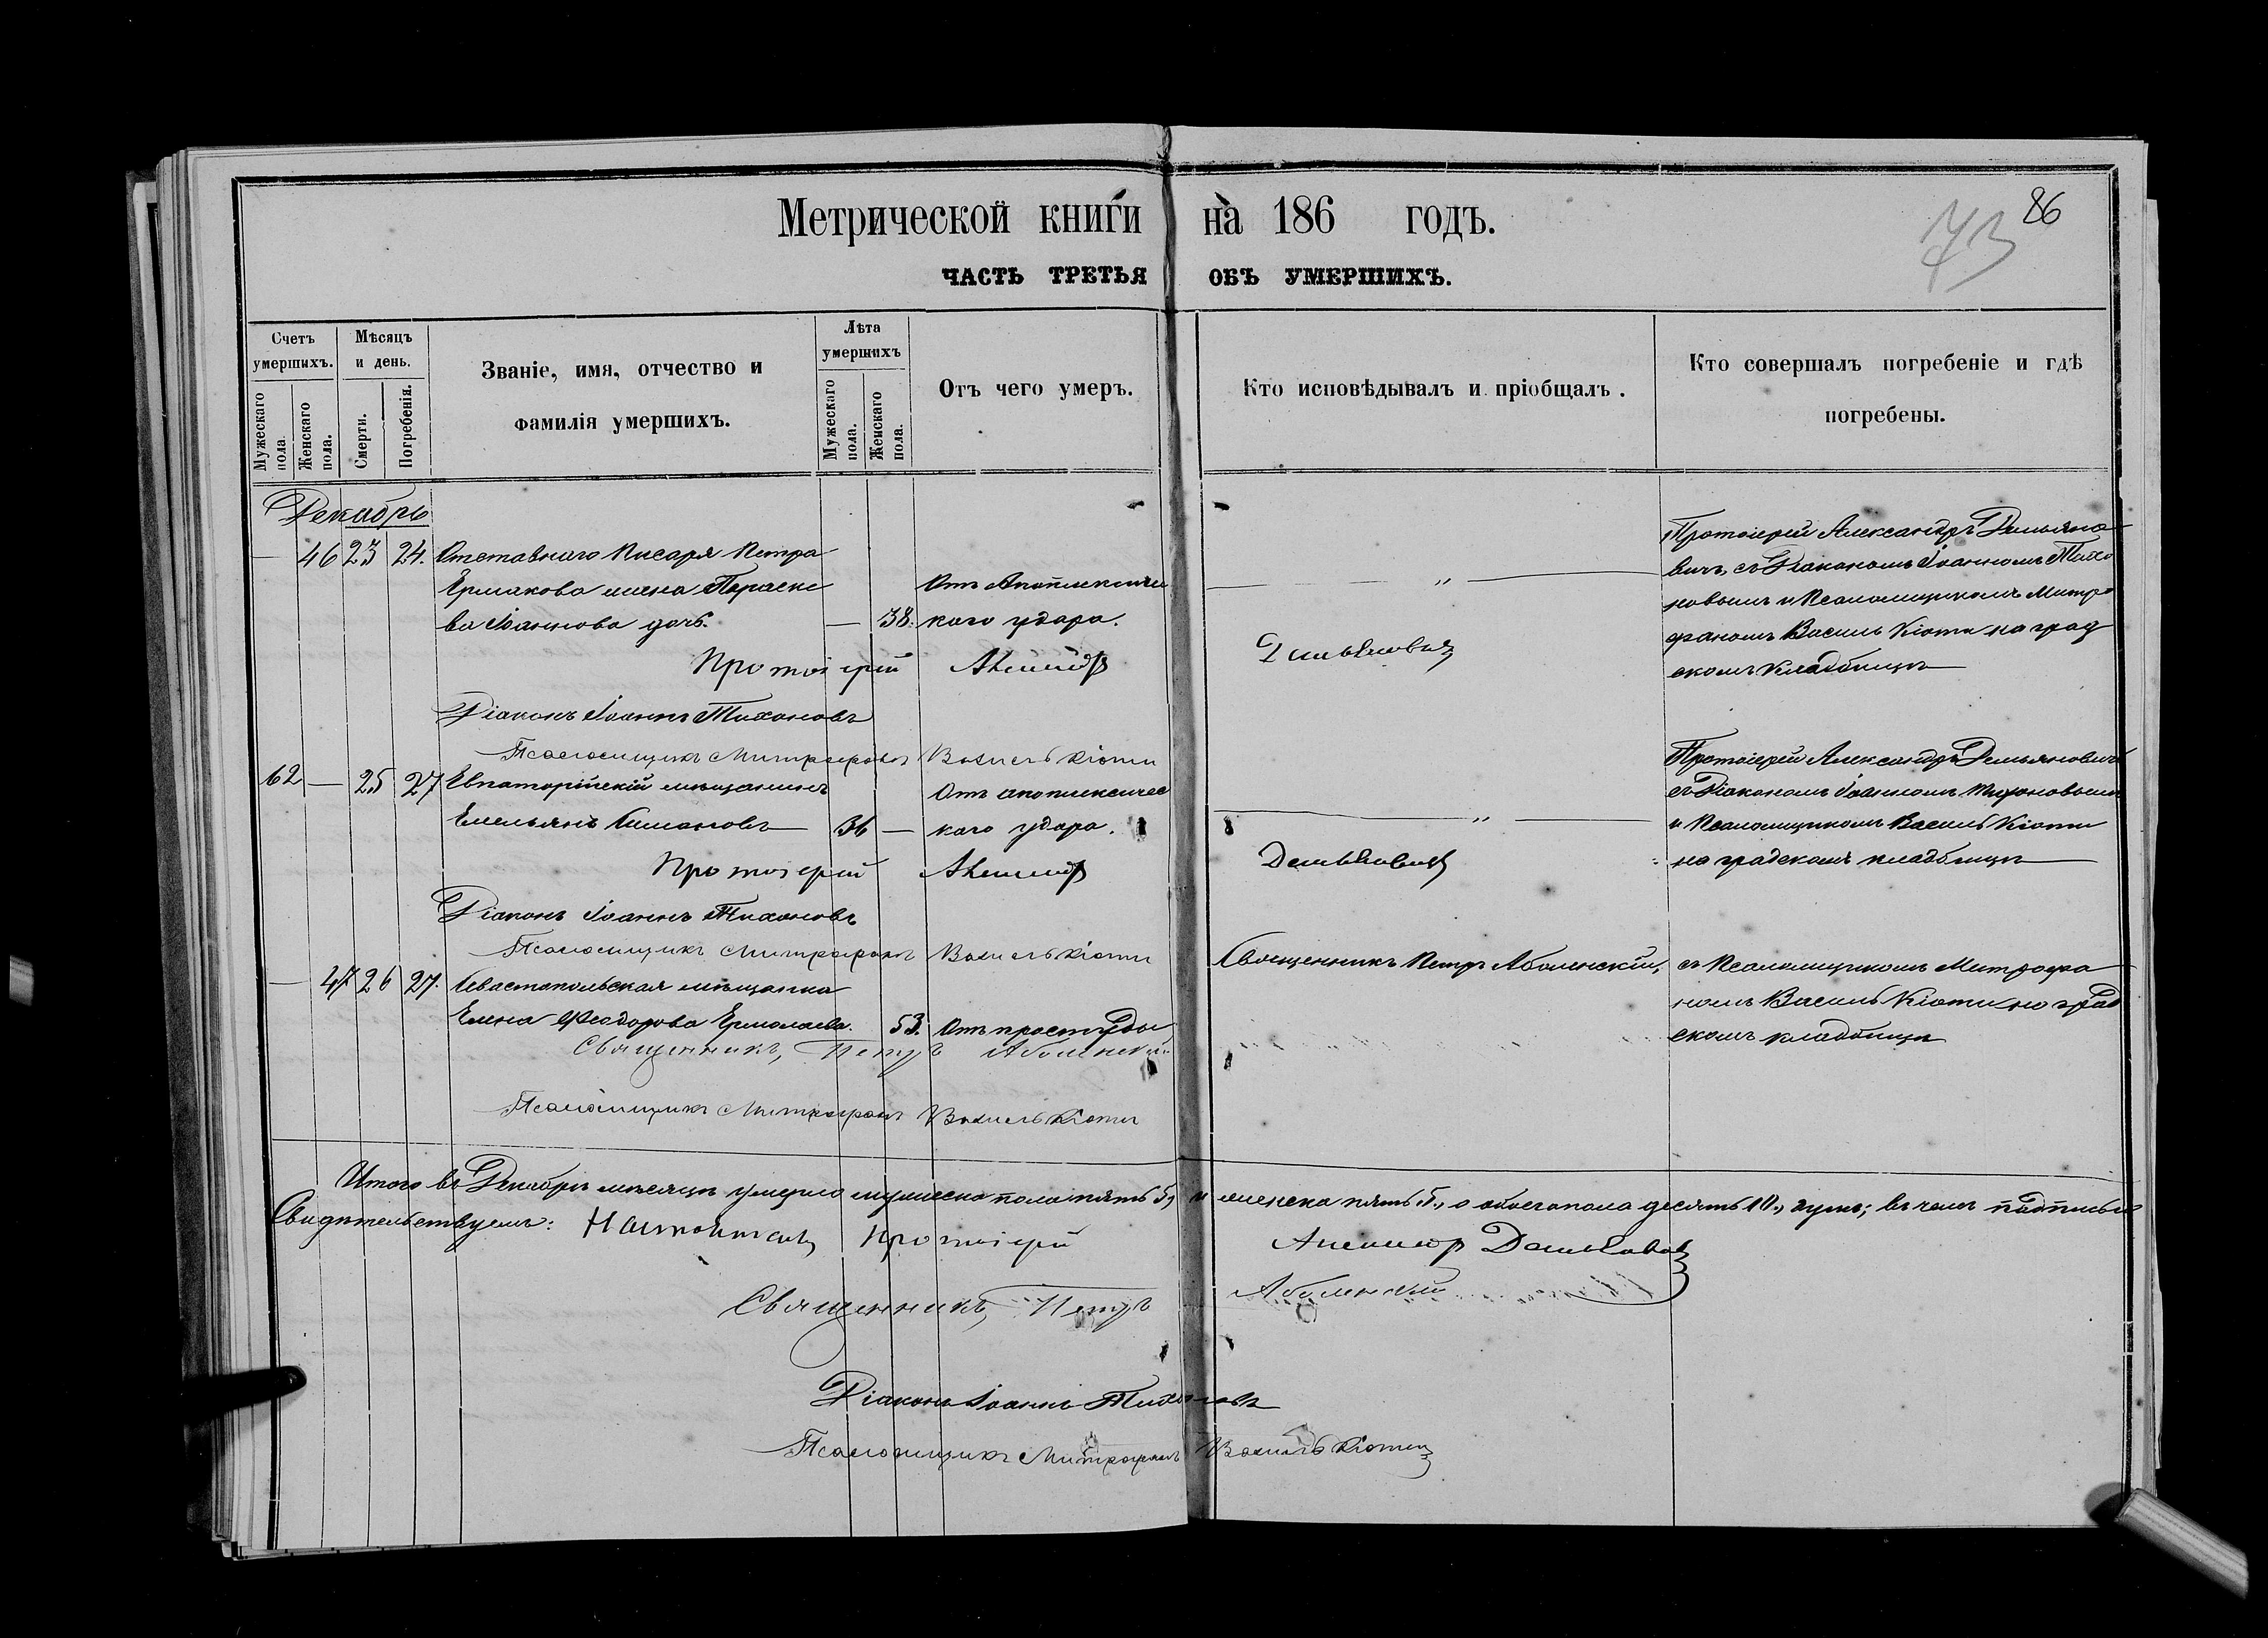 Метрической книги на 186 годъ.
86
73
ЧАСТЬ ТРЕТЬЯ ОБЪ УМЕРШИХЪ.
Счетъ умершихъ.
Мужескаго пола.
Женскаго пола.
Мѣсяцъ и день.
Смерти.
Погребенія.
Званіе, имя, отчество и
фамилія умершихъ.
Лѣта умершихъ
Мужескаго пола.
Женскаго пола.
Отъ чего умеръ.
Кто исповѣдывалъ и пріобщалъ.
Кто совершалъ погребеніе и гдѣ
погребены.
Декабрь
— 46 23 24. Отставнаго Писаря Петра
Ермакова жена Параске
ва Іоаннова дочь. — 38.
Отъ Апоплексичес
каго удара.
"
Протоіерей Александръ Демьяно
вичъ, съ Діакономъ Іоанномъ Тихо
новымъ и Псаломщикомъ Митро
фаномъ Василь Кіоти на град
скомъ кладбищѣ
Протоіерей Демьяновичъ
Діаконъ Іоаннъ Тихоновъ
Псаломщикъ Митрофанъ Василькіоти
62 — 25 27 Евпаторійскій мѣщанинъ
Емельянъ 36 —
Отъ апоплексичес
каго удара.
"
Протоіерей Александръ Демьяновичъ
съ Діакономъ Іоанномъ Тихоновымъ
и Псаломщикомъ Василь Кіоти
на градскомъ кладбищѣ
Протоіерей Демьяновичъ
Діаконъ Іоаннъ Тихоновъ
Псаломщикъ Митрофанъ Василькіоти
— 47 26 27. Севастопольская мѣщанка
Елена Феодорова Ермолаева. 53. Отъ простуды
Священникъ Петръ Аболенскій,
съ Псаломщикомъ Митрофа
номъ Василь Кіоти на град
скомъ кладбищѣ
Священникъ, Петръ Аболенскій
Псаломщикъ Митрофанъ Василькіоти
Итого въ Декабрѣ мѣсяцѣ умерло мужеска пола пять 5, и женска пять 5., а обоего пола десять 10., душъ; въ чемъ подписью
Свидѣтельствуемъ: Протоіерей Демьяновичъ
Священникъ, Петръ Аболенскій
Діаконъ Іоаннъ Тихоновъ
Псаломщикъ Митрофанъ Василькіоти